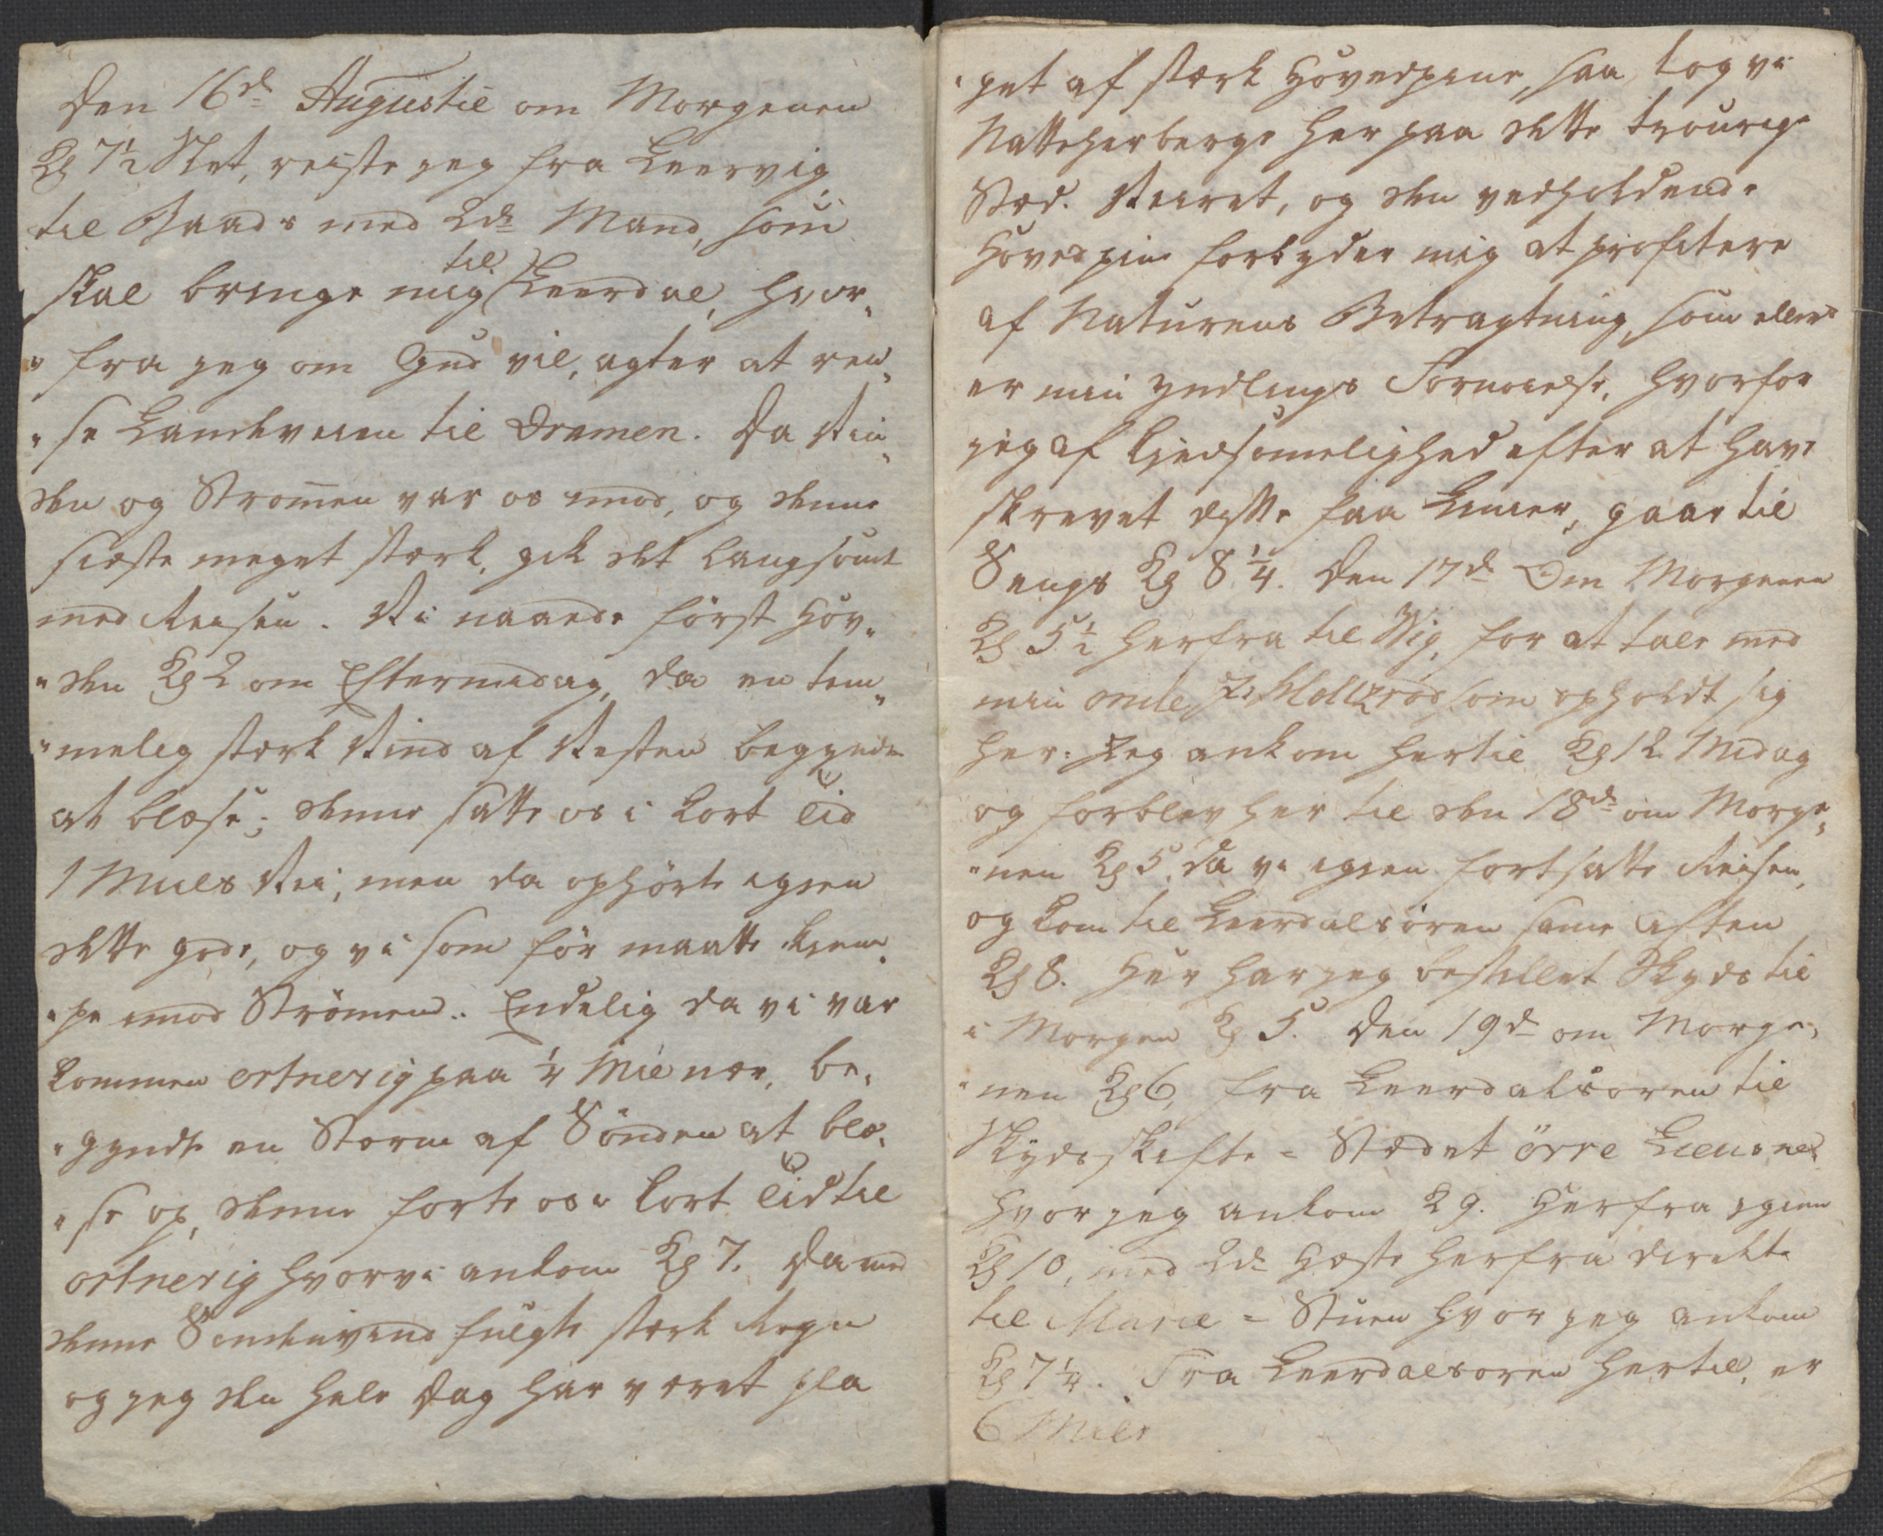 Den 16de Augustii om Morgenen
Kl 7½ Slet, reiste jeg fra Leervig
til Baads med 2de Mand, som
skal bringe mig til Leerdal, hvor-
"fra jeg om Gud vil, agter at rei-
"se Landeveien til Dramen. Da Vin-
den og Strømen var os imod, og denne
sidste meget stærk, gik det langsomt
med Reisen. Vi naaede først Høv-
"den Kl 2 om Eftermidag, da en tem-
"melig stærk Vind af Vesten begynde
at blæse; denne satte os i kort Tid
1 Miils Vei, men da ophørte igien
dette gode, og vi som før maatte kiem-
"pe imod Strømen. Endelig da vi var
kommen ortnevig paa ¼ Miil nær, be-
"gyndte en Storm af Sønden at blæ-
"se op, denne førte os i kort Tid til
ortnevig hvor vi ankom Kl 7. Da med
denne Søndenvind fulgte stærk Regn
og jeg den hele Dag har været pla
"get af stærk Hovedpine, saa tog vi
Natteherberge her paa dette trourige
Stæd. Veiret, og den vedholdende
Hovedpine forbyder mig at profitere
af Naturens Betragtning, som ellers
er min yndlings Fornøielse, hvorfor
jeg af kjedsomelighed efter at have
skrevet disse faa Linier, gaar til
Sengs Kl 8¼. Den 17de Om Morgenen
Kl 5½ herfra til Vig, for at tale med
min onkle J: som opholdt sig
her. Jeg ankom hertil Kl 12 Midag
og forblev her til den 18de om Morge-
"nen Kl 5, da vi igien fortsatte Reisen,
og kom til Leerdalsøren same Aften
Kl 8. Her har jeg bestillet Skyds til
i Morgen Kl 5. Den 19de om Morge-
"nen Kl 6, fra Leerdalsøren til
Skydsskifte = Stædet øvre Lieusne
hvor jeg ankom Kl 9. Herfra igien
Kl 10, med 2de Heste herfra direkte
til Marie = Stuen hvor jeg ankom
Kl 7¼. Fra Leerdalsøren hertil, er
6 Miile